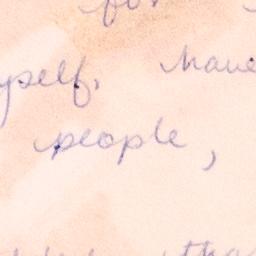 for
myself, have
people,
tha